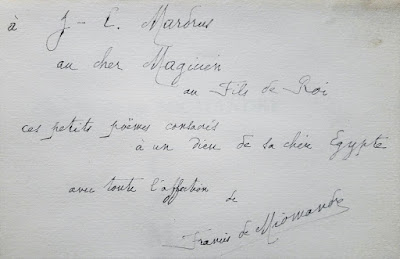 à J-C. Mardrus
au cher Magicien
au Fils de Roi
ces petits poëmes consacrés
à un dieu de sa chère Égypte
avec toute l'affection
de
Francis de Miomandre